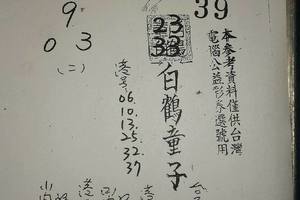 39
本參考資料僅供台灣
電腦公益彩券選號用
23
33
白鶴童子
港号
06.
10.
13.
25.
32.
37
9
0 3
(二)